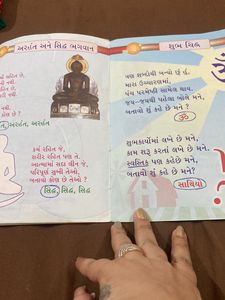 અરિહંત અને સિદ્ધ ભગવાન
અરિહંત, અરિહંત
કર્મ રહિત જે,
શરીર રહિત પણ તે.
આત્મામાં સદા લીન જે,
પરિપૂર્ણ સુખી તેઓ,
બતાવો કોણ છે તેઓ ?
સિદ્ધ, સિદ્ધ, સિદ્ધ
શુભ ચિહ્ન
પણ શબ્દોથી બન્યો છું હું,
મારા ઉચ્ચારણમાં,
પંચ પરમેષ્ઠી સામેલ થાય.
જય-જયથી પહેલા બોલે મને,
બતાવો શું કહે છે મને.
ૐ
શુભકાર્યોમાં લખે છે મને,
કામ શરૂ કરતાં લખે છે મને.
સ્વસ્તિક પણ કહે છે મને,
બતાવો શું કહે છે મને?
સાથિયો
ૐ
?